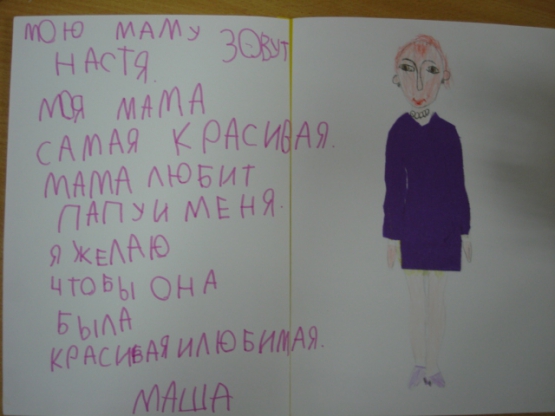 МОЮ МАМУ ЗОВУТ
НАСТЯ.
МОЯ МАМА
САМАЯ КРАСИВАЯ.
МАМА ЛЮБИТ
ПАПУ И МЕНЯ.
Я ЖЕЛАЮ
ЧТОБЫ ОНА
БЫЛА
КРАСИВАЯ И ЛЮБИМАЯ.
МАША